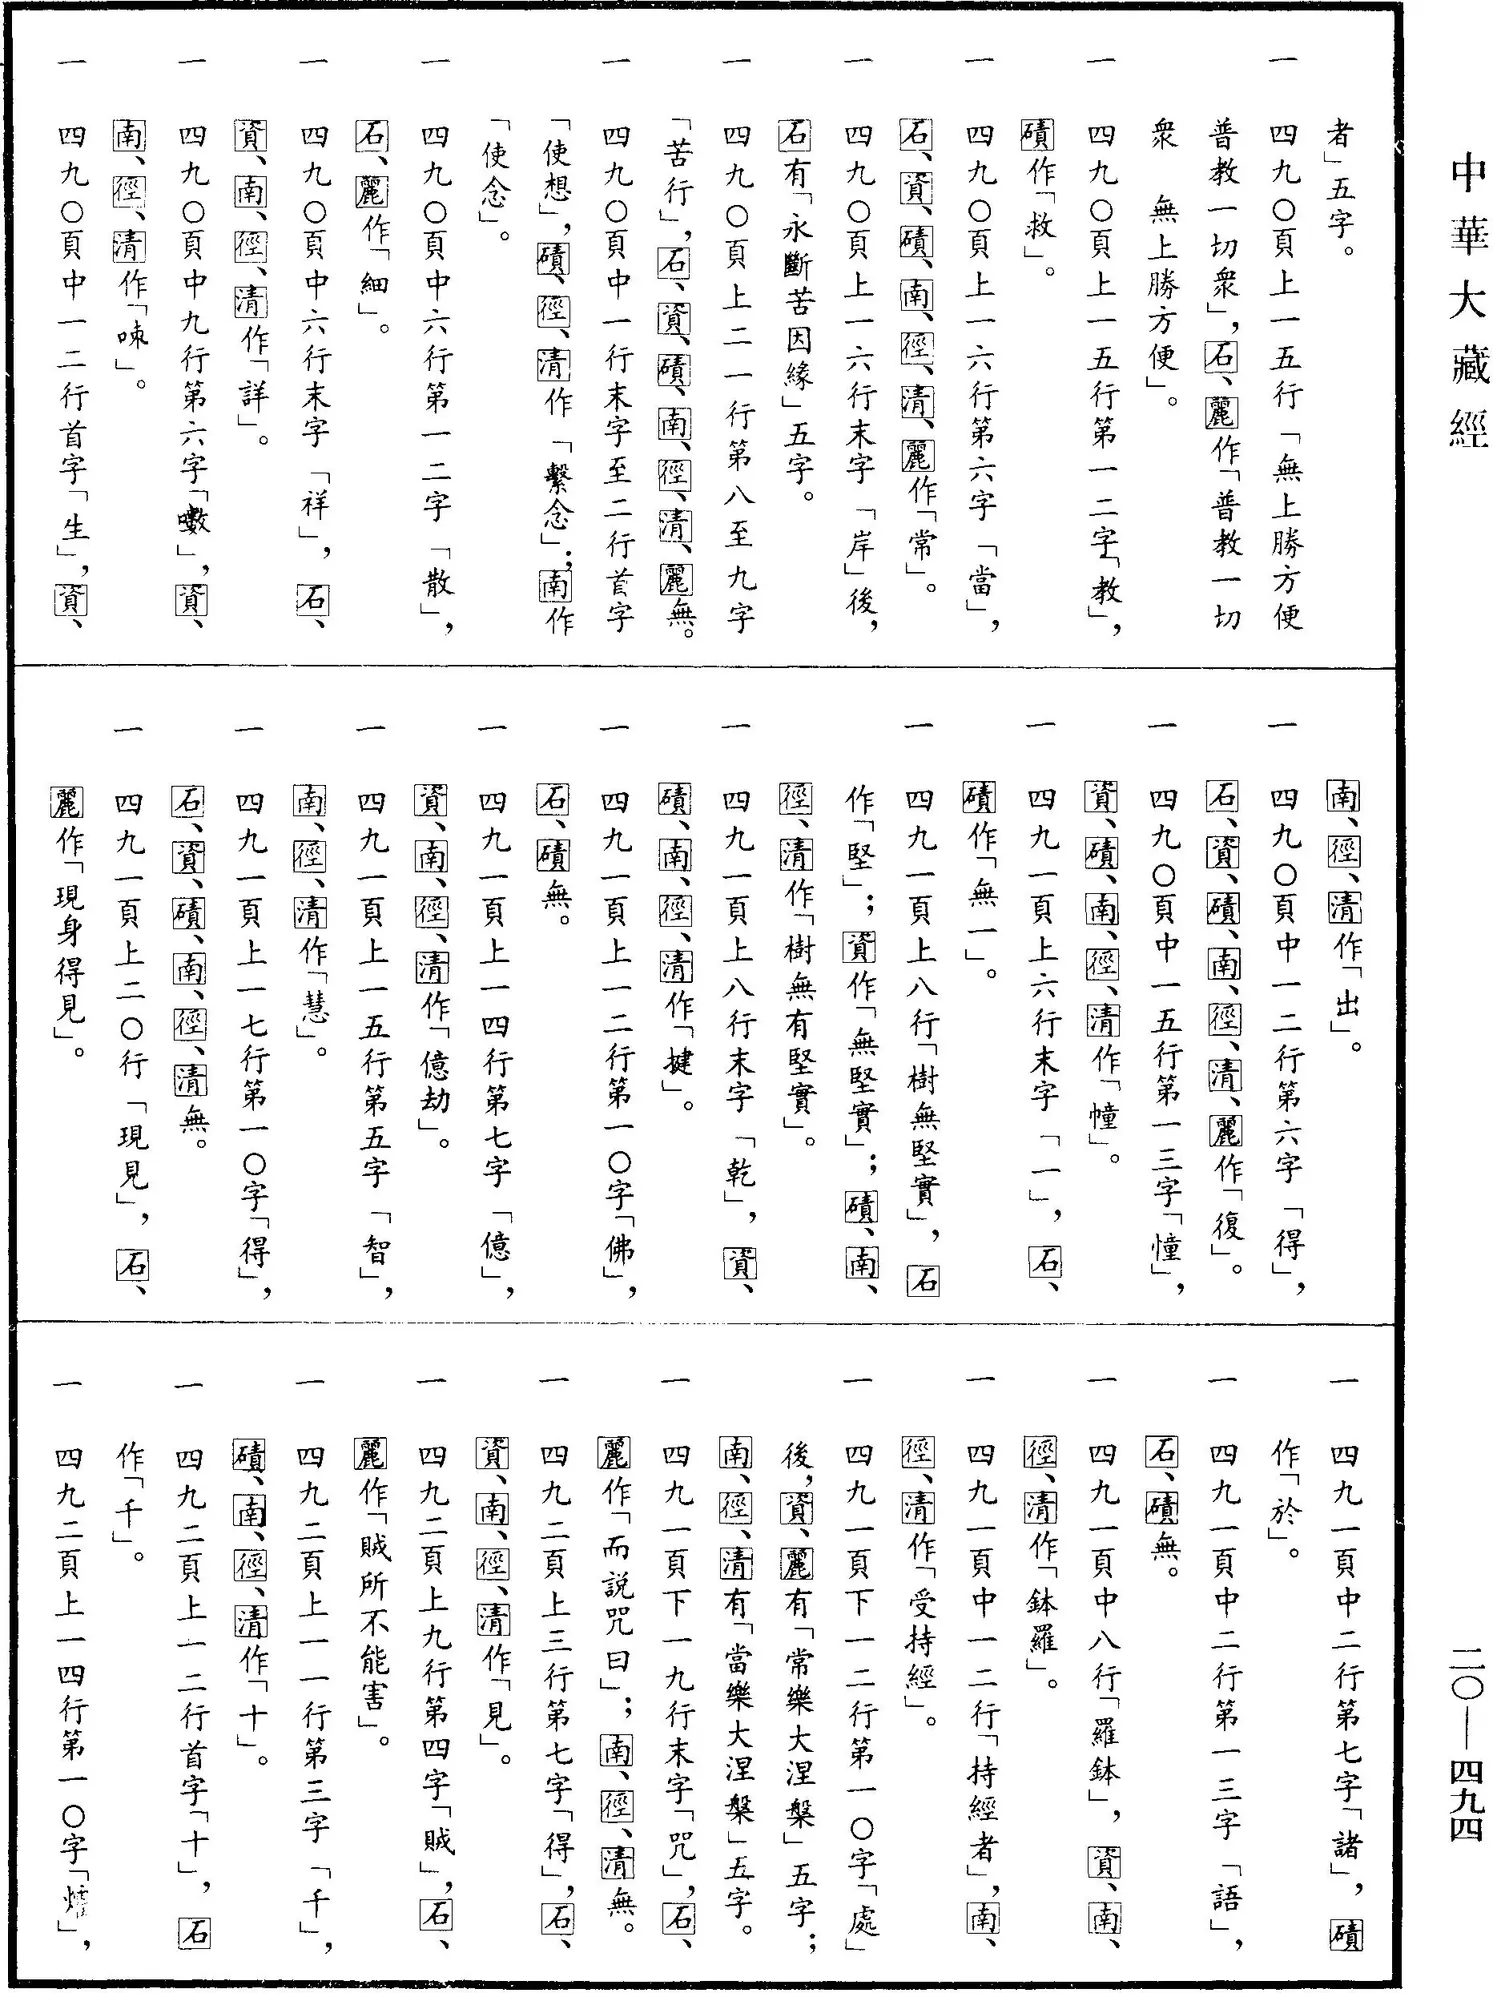 中華大藏經
二〇—四九四
者」五字。
一　四九〇頁上一五行「無上勝方便
普教一切衆」，石、麗作「普教一切
衆　無上勝方便」。
一　四九〇頁上一五行第一二字「教」，
磧作「救」。
一　四九〇頁上一六行第六字「當」，
石、資、磧、南、徑、清、麗作「常」。
一　四九〇頁上一六行末字「岸」後，
石有「永斷苦因緣」五字。
一　四九〇頁上二一行第八至九字
「苦行」，石、資、磧、南、徑、清、麗無。
一　四九〇頁中一行末字至二行首字
「使想」，磧、徑、清作「繫念」；南作
「使念」。
一　四九〇頁中六行第一二字「散」，
石、麗作「細」。
一　四九〇頁中六行末字「祥」，石、
資、南、徑、清作「詳」。
一　四九〇頁中九行第六字「嗽」，資、
南、徑、清作「唻」。
一　四九〇頁中一二行首字「生」，資、
南、徑、清作「出」。
一　四九〇頁中一二行第六字「得」，
石、資、磧、南、徑、清、麗作「復」。
一　四九〇頁中一五行第一三字「憧」，
資、磧、南、徑、清作「幢」。
一　四九一頁上六行末字「一」，石、
磧作「無一」。
一　四九一頁上八行「樹無堅實」，石
作「堅」；資作「無堅實」；磧、南、
徑、清作「樹無有堅實」。
一　四九一頁上八行末字「乾」，資、
磧、南、徑、清作「揵」。
一　四九一頁上一二行第一〇字「佛」，
石、磧無。
一　四九一頁上一四行第七字「億」，
資、南、徑、清作「億劫」。
一　四九一頁上一五行第五字「智」，
南、徑、清作「慧」。
一　四九一頁上一七行第一〇字「得」，
石、資、磧、南、徑、清無。
一　四九一頁上二〇行「現見」，石、
麗作「現身得見」。
一　四九一頁中二行第七字「諸」，磧
作「於」。
一　四九一頁中二行第一三字「語」，
石、磧無。
一　四九一頁中八行「羅鉢」，資、南、
徑、清作「鉢羅」。
一　四九一頁中一二行「持經者」，南、
徑、清作「受持經」。
一　四九一頁下一二行第一〇字「處」
後，資、麗有「常樂大涅槃」五字；
南、徑、清有「當樂大涅槃」五字。
一　四九一頁下一九行末字「咒」，石、
麗作「而說咒曰」；南、徑、清無。
一　四九二頁上三行第七字「得」，石、
資、南、徑、清作「見」。
一　四九二頁上九行第四字「賊」，石、
麗作「賊所不能害」。
一　四九二頁上一一行第三字「千」，
磧、南、徑、清作「十」。
一　四九二頁上一二行首字「十」，石
作「千」。
一　四九二頁上一四行第一〇字「」，